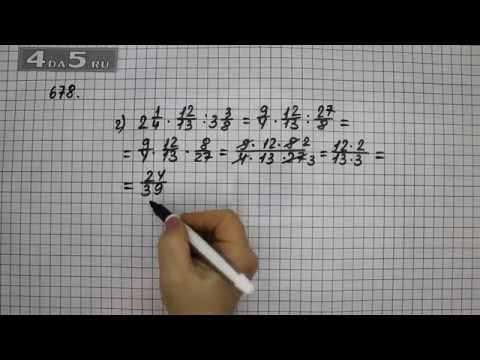 4DA5.RU
678.
г) 2 1/4 · 12/13 : 3 3/8 = 9/4 · 12/13 : 27/8 =
= 9/4 · 12/13 · 8/27 = 9 · 12 · 8 2/4 · 13 · 27 3 = 12 · 2/13 · 3 =
= 24/39